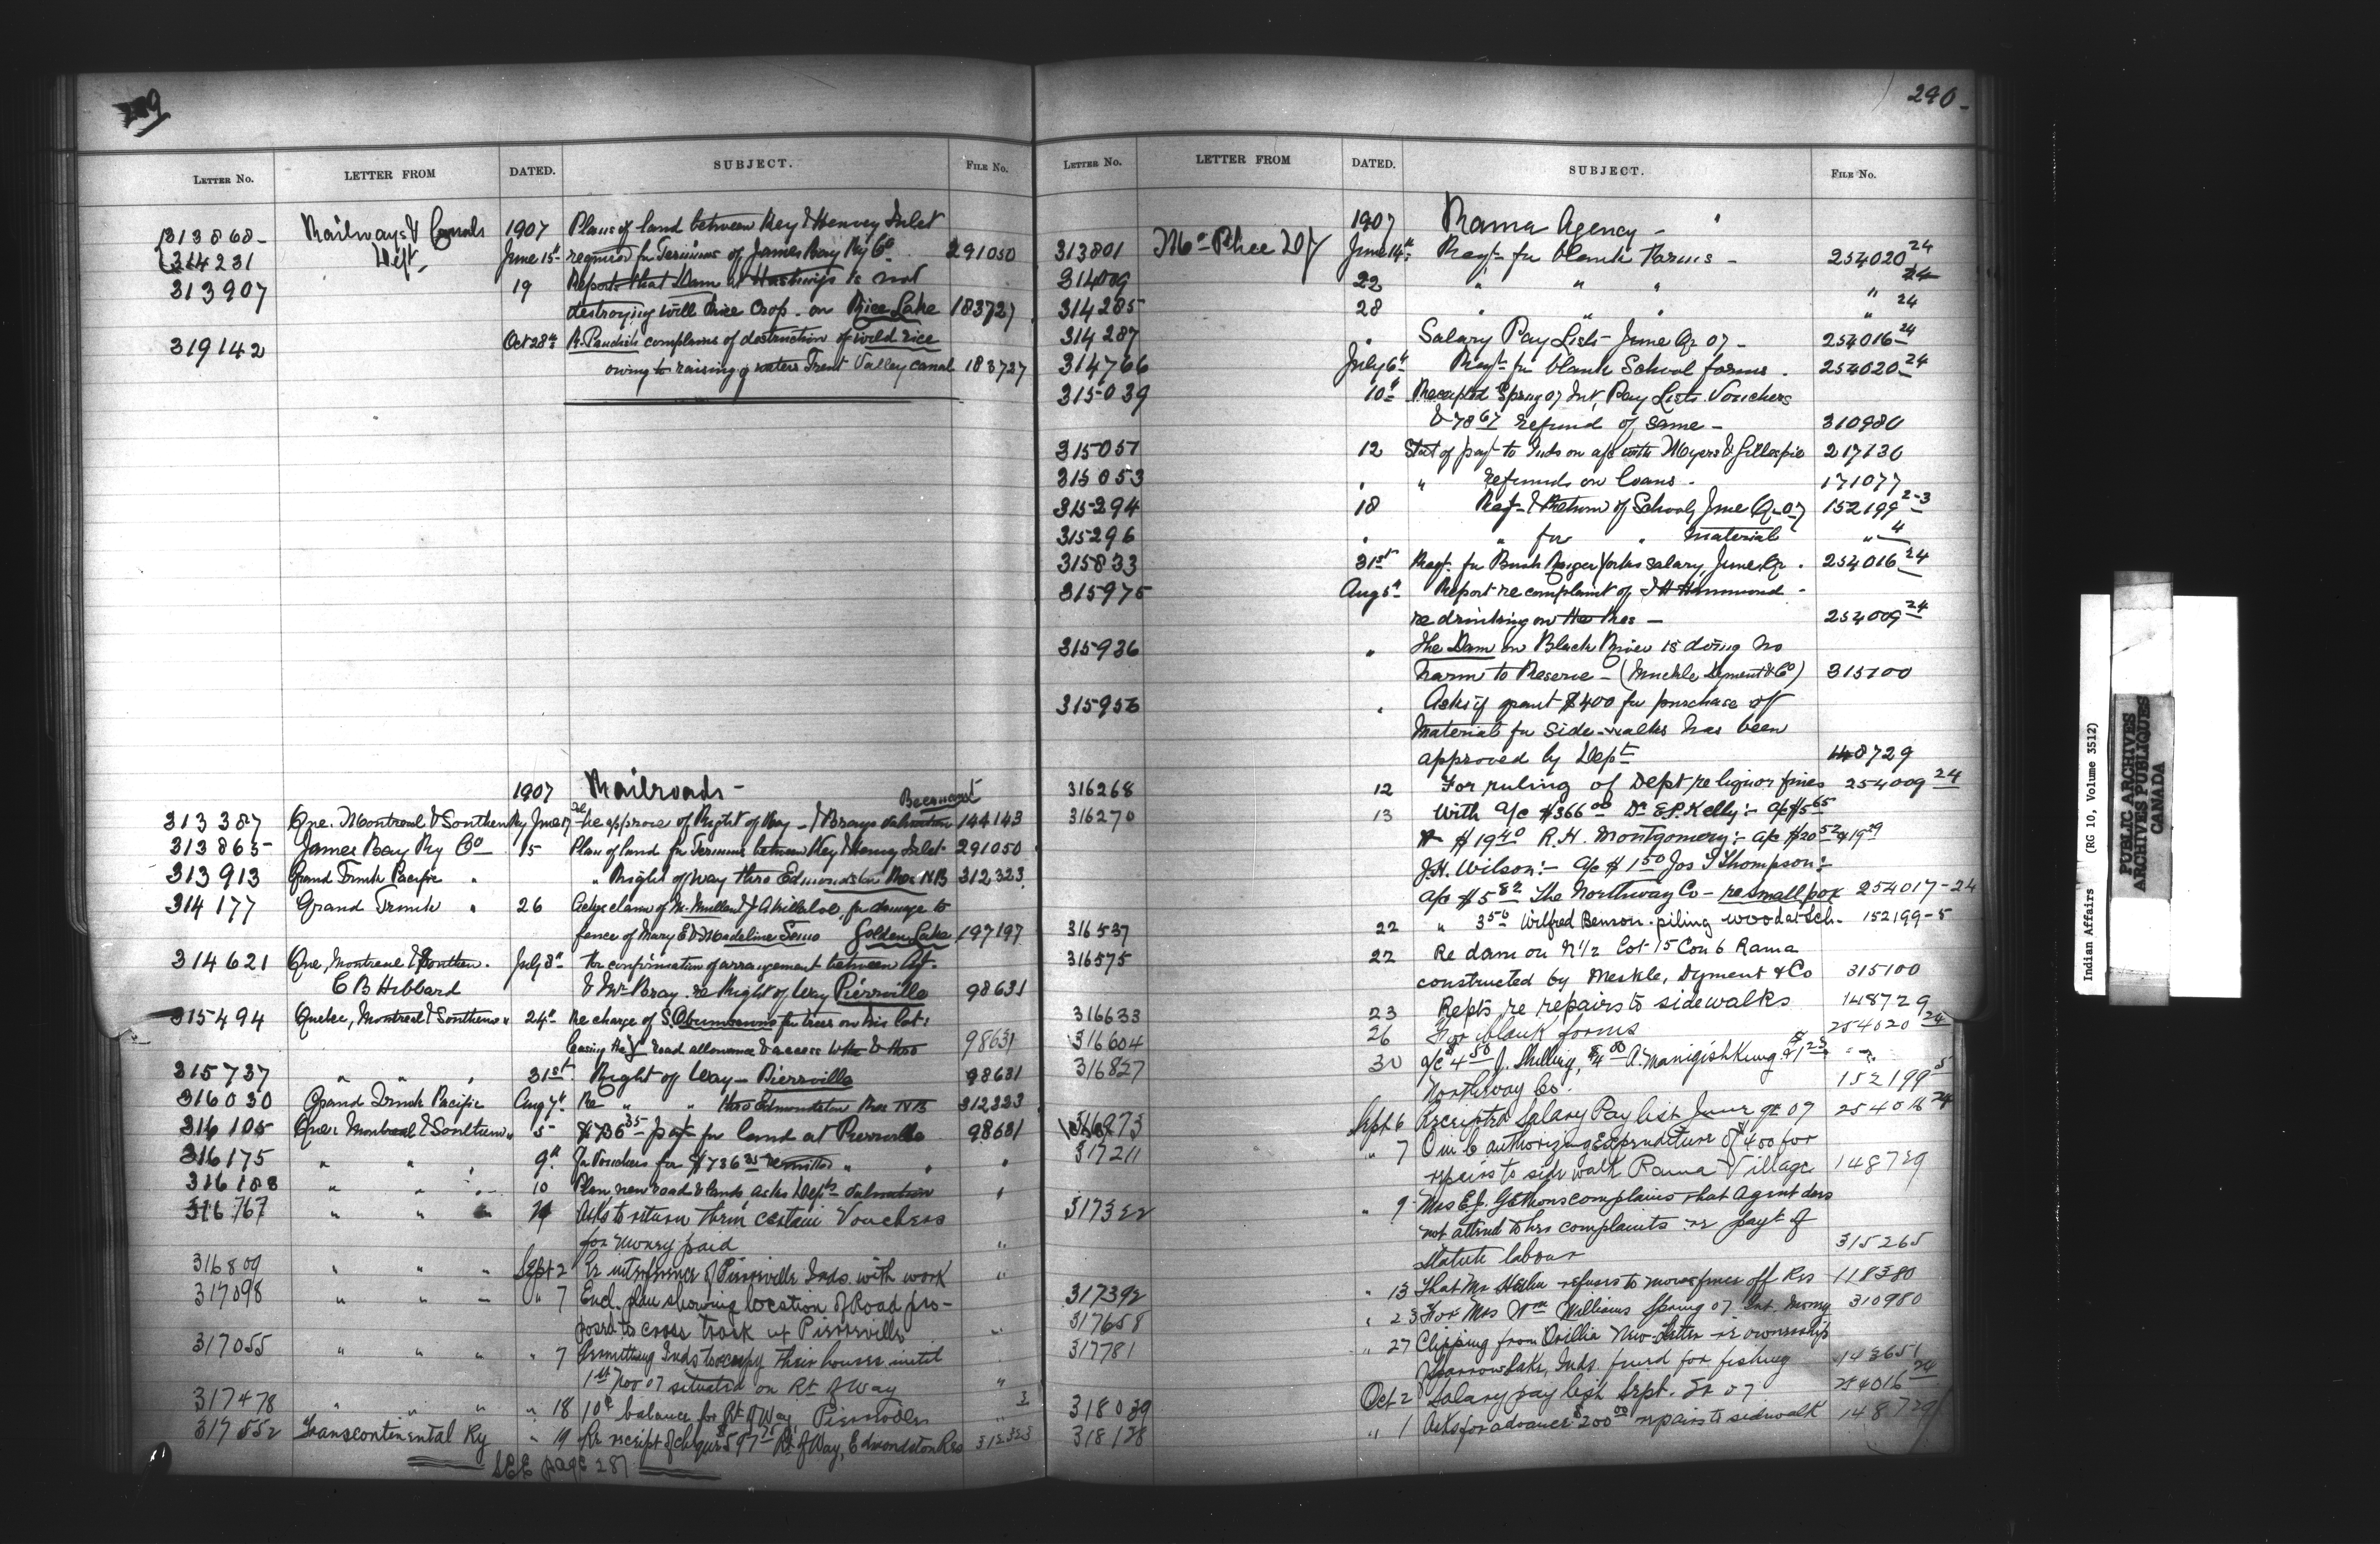 289
LETTER NO. LETTER FROM DATED. SUBJECT. FILE No.
313868- Railways & Canals 1907 Plans of land between Key & Henvey Inlet
314231 Dept. June 15th required for Terminus of James Bay Ry Co. 291050
313907 19 Reports that Dam at Hastings is not
destroying wild Rice Crop. on Rice Lake 183727
319142 Oct 28th complains of destruction of wild rice
owing to raising of waters Trent Valley canal 183727
1907 Railroads -
313387 Que. Montreal & Southern Ry June 17 re approve of Right of Way - & Brays valuation 144143
313865- James Bay Ry Co 15 Plan of land for Terminus between Key & Henvey Inlet 291050
313913 Grand Trunk Pacific " " Right of Way thro Edmundston Res NB 312323
314177 Grand Trunk " 26 for damage to
fence of Mary E & Madeline Golden Lake 197197
314621 Que, Montreal & Southern. July 3rd For confirmation of arrangement between
C B Hibbard & Mr Bray. re Right of Way Pierrville 98631
315494 Quebec, Montreal & Southern " 24th Re charge of S. Obumsawin for trees on his lot,
road allowance & access 98631
315737 " " " 31st Right of Way - Pierrville 98631
316030 Grand Trunk Pacific Aug 7th Re " " thro Edmundston Res NB 312323
316105 Que. Montreal & Southern " 5 $736.35 payt for land at Pierrville 98631
316175 " " " 9th For Vouchers for $736.35 remitted " " "
316188 " " " 10 Plan new road & lands asks Depts valuation "
316767 " " " Asks to return them certain Vouchers
for money paid "
316809 " " " Sept 2 Re interference of Pierreville Inds. with work "
317098 " " " " 7 Encl. plan showing location of Road pro-
posed to cross track at Pierreville "
317055 " " " " 7 Permitting Inds to occupy their houses until
1st Nov 07 situated on Rt. of Way "
317478 " " " " 18 balance for Rt of Way, Pierreville " 3
317552 Transcontinental Ry " 19 Re receipt of cheque $597 Rt of Way, Edmondston Res 312323
SEE page 287
290-
LETTER NO. LETTER FROM DATED. SUBJECT. FILE No.
1907 Rama Agency -
313801 McPhee D.J. June 14th Reqt. for blank Forms - 254020 24
314009 22 " " " " 24
314285 28 " " " " 24
314287 " Salary Pay Lists June Qr 07 - 254016 24
314766 July 6th Reqt. for blank School forms. 254020 24
315039 10th Receipted Spring 07 Int. Pay Lists. Vouchers
& 78.67 refund of same - 310980
315051 12 Stat of payt to Inds on a/c with Myers & Gillespie 217130
315053 " " refunds on loans. 171077
315294 18 Reqt & Return of Schools June Qr 07 152199 2-3
315296 " " for " material " 4
315833 31st Reqt. for Bush Ranger Yorks salary, June Qr. 254016 24
315975 Aug 5th Report re complaint of J H Hammond -
re drinking on the Res - 254009 24
315936 " The Dam on Black River is doing no
harm to Reserve - (Muckle Dyment & Co) 315100
315956 " Asks if grant $400 for purchase of
material for side-walks has been
approved by Dept 148729
316268 12 For ruling of Dept re liquor fines 254009 24
316270 13 With a/c $366.00 Dr E.P. Kelly:- a/c $5.65
& $19.40 R.H. Montgomery:- a/c $20.52 & 19.29
J.H. Wilson:- a/c $1.50 Jos Thompson:-
a/c $5.82 The Northway Co - re small pox 254017-24
316537 22 " 3.50 Wilfred Benson. piling wood at Sch. 152199-5
316575 22 Re dam on N1/2 Lot 15 Con 6 Rama
constructed by Meskle, Dyment & Co 315100
316633 23 Repts re repairs to sidewalks 148729
316604 26 For blank forms 254020 24
316827 30 a/c $4.50 J. Shilling, A. Manigishkung & 1.25
Northway Co. 152199 5
316973 Sept 6 Receipted Salary Pay list June qr 07 254016 24
317211 " 7 O in C authorizing Expenditure of $400 for
repairs to side walk Rama Village 148729
317322 " 9 Mrs E.J. complains that Agent does
not attend to her complaints re payt of
Statute labour 315265
317392 " 13 That Mr refuses to move fence off Res 118380
317658 " 23 For Mrs Wm Williams Spring 07 Int. Money 310980
317781 " 27 Clipping from Orillia News-Letter re ownership
Sparrow Lake, Inds. fined for fishing 142651
318039 Oct 2 Salary pay list Sept. Qr 07 254016 24
318128 " 1 Asks for advance $200.00 repairs to sidewalk 148729
Indian Affairs (RG 10, Volume 3512)
PUBLIC ARCHIVES
ARCHIVES PUBLIQUES
CANADA